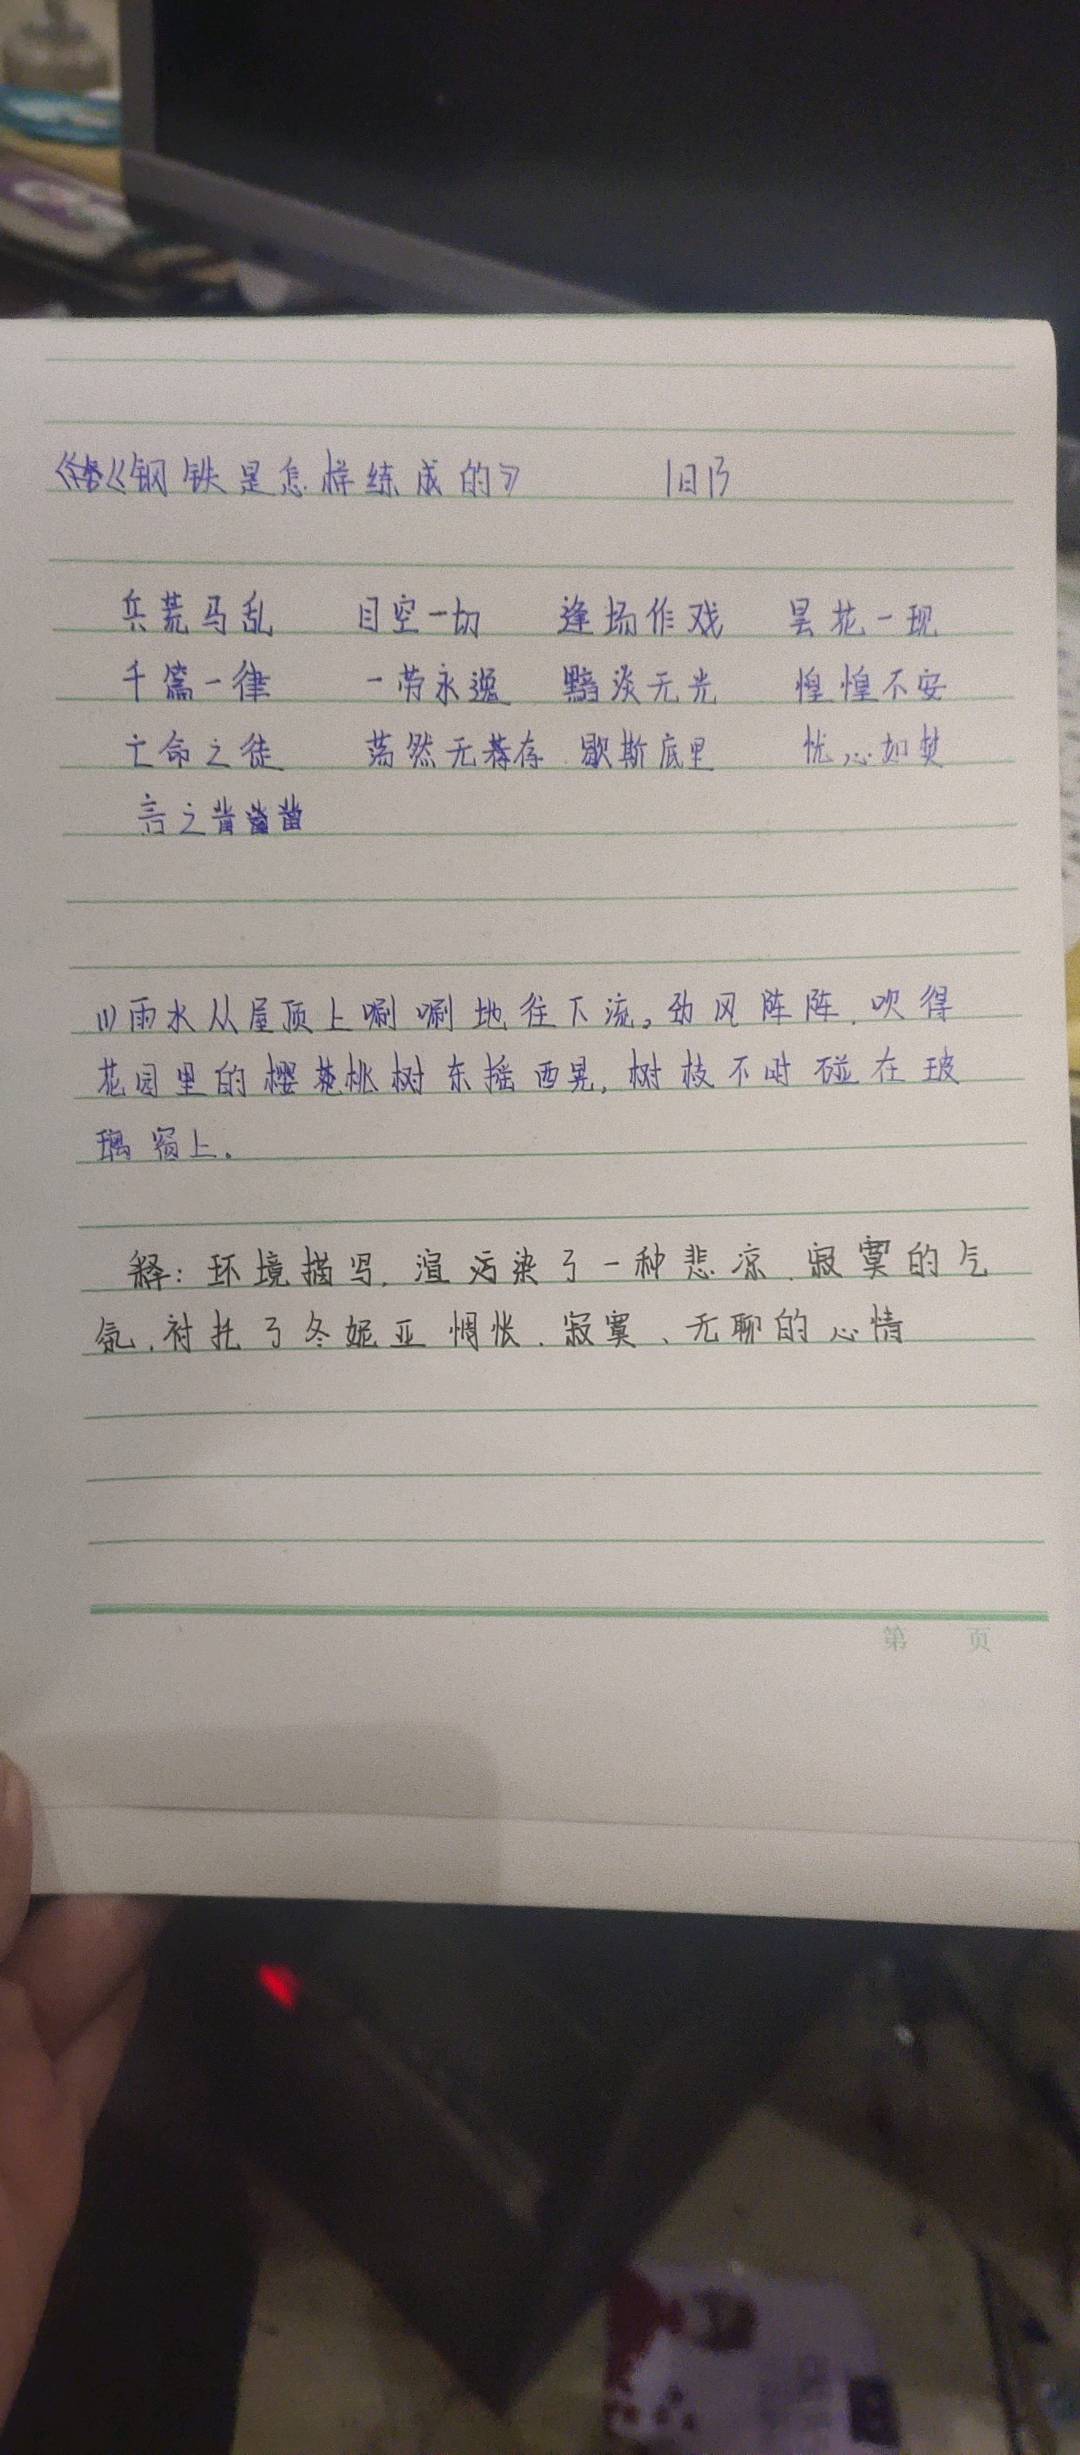 《钢铁是怎样练成的》 1日13
兵荒马乱 目空一切 逢场作戏 昙花一现
千篇一律 一劳永逸 黯淡无光 惶惶不安
亡命之徒 荡然无存 歇斯底里 忧心如焚
言之凿凿
(1)雨水从屋顶上唰唰地往下流。劲风阵阵，吹得
花园里的樱桃树东摇西晃，树枝不时碰在玻
璃窗上。
释：环境描写，渲染了一种悲凉、寂寞的气
氛，衬托了冬妮亚惆怅、寂寞、无聊的心情
第 页